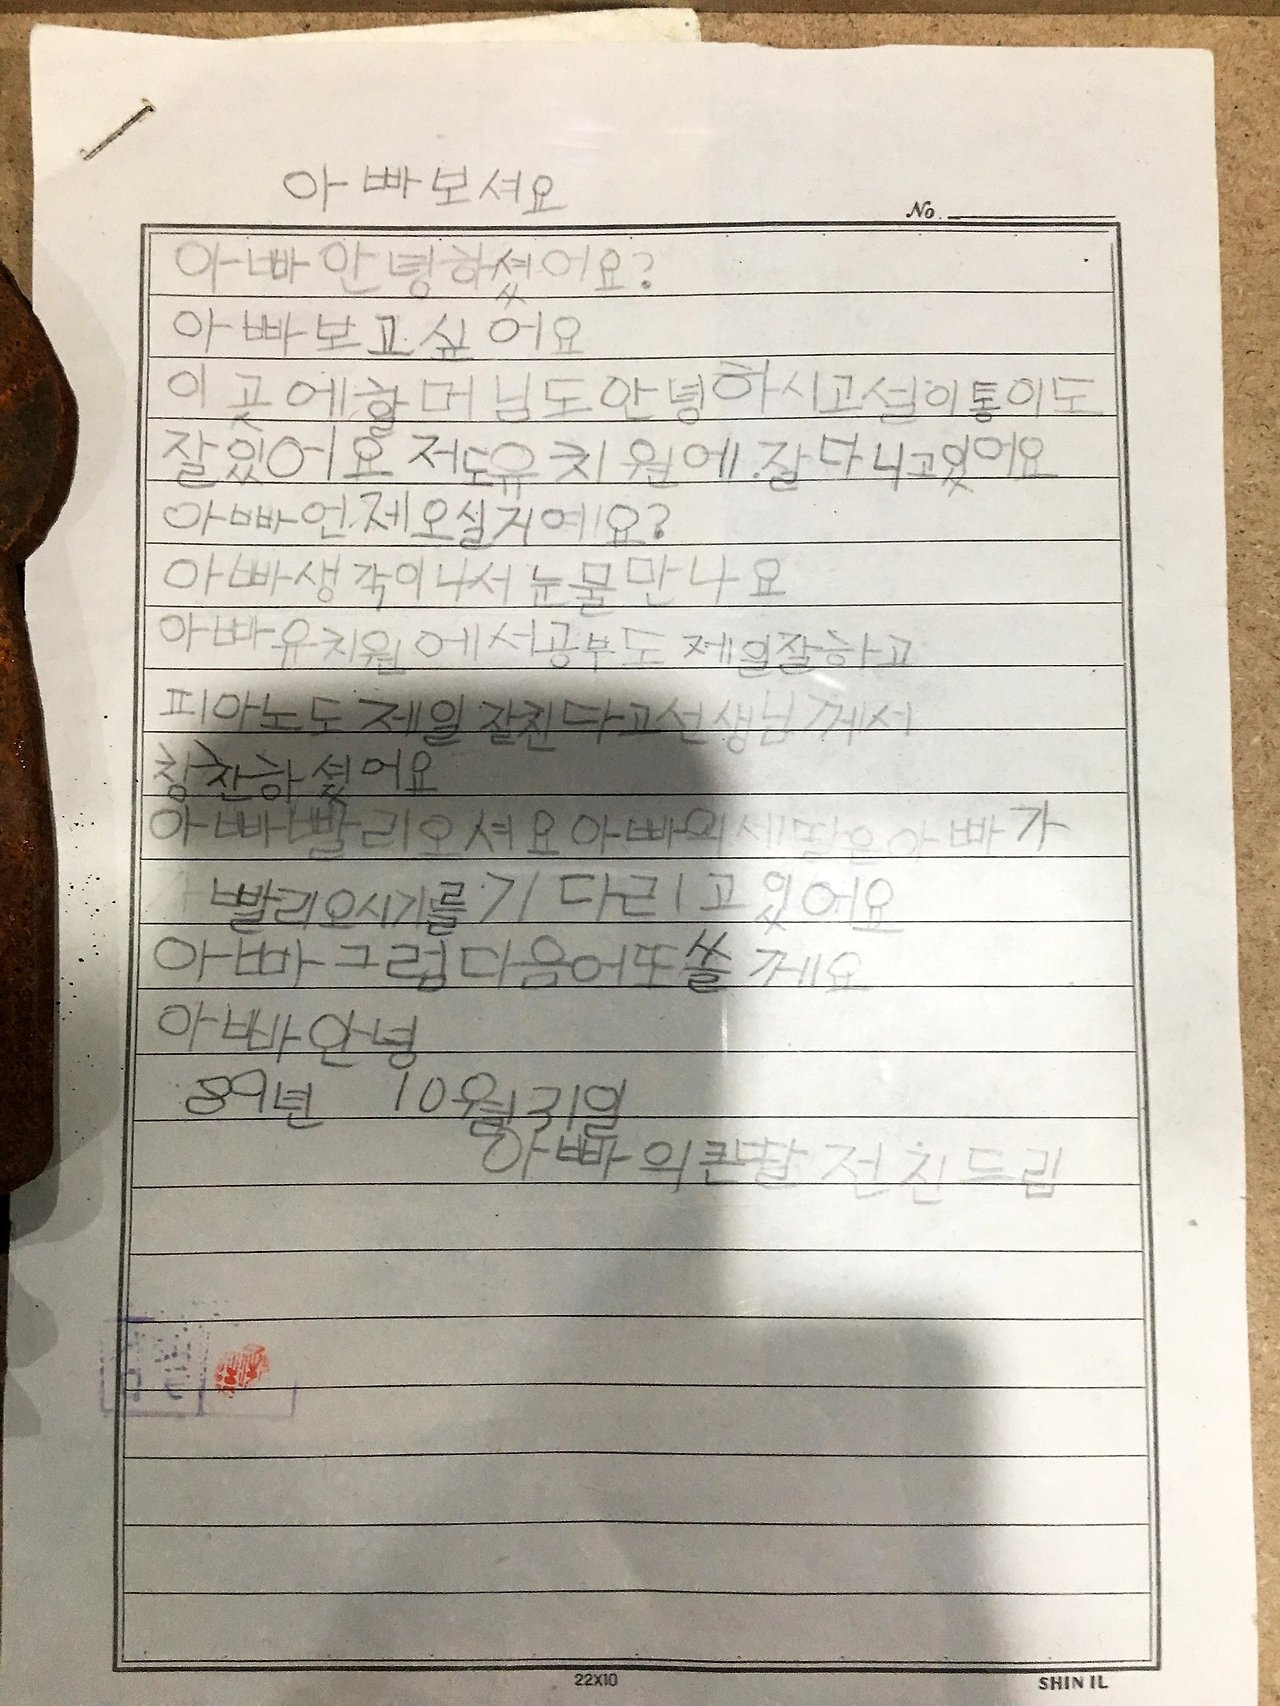 아빠보셔요
No.
아빠안녕하셨어요?
아빠보고싶어요
이곳에할머님도안녕하시고설이통이도
잘있어요 저도유치원에.잘다니고있어요
아빠언제오실거예요?
아빠생각이나서눈물만나요
아빠유치원에서공부도 제일잘하고
피아노도제일잘친다고선생님께서
칭찬하셨어요
아빠빨리오셔요아빠의세딸은아빠가
빨리오시기를기다리고있어요
아빠그럼다음어또쓸께요
아빠안녕
89년 10월31일
아빠의큰딸전진드림
22X10
SHIN IL